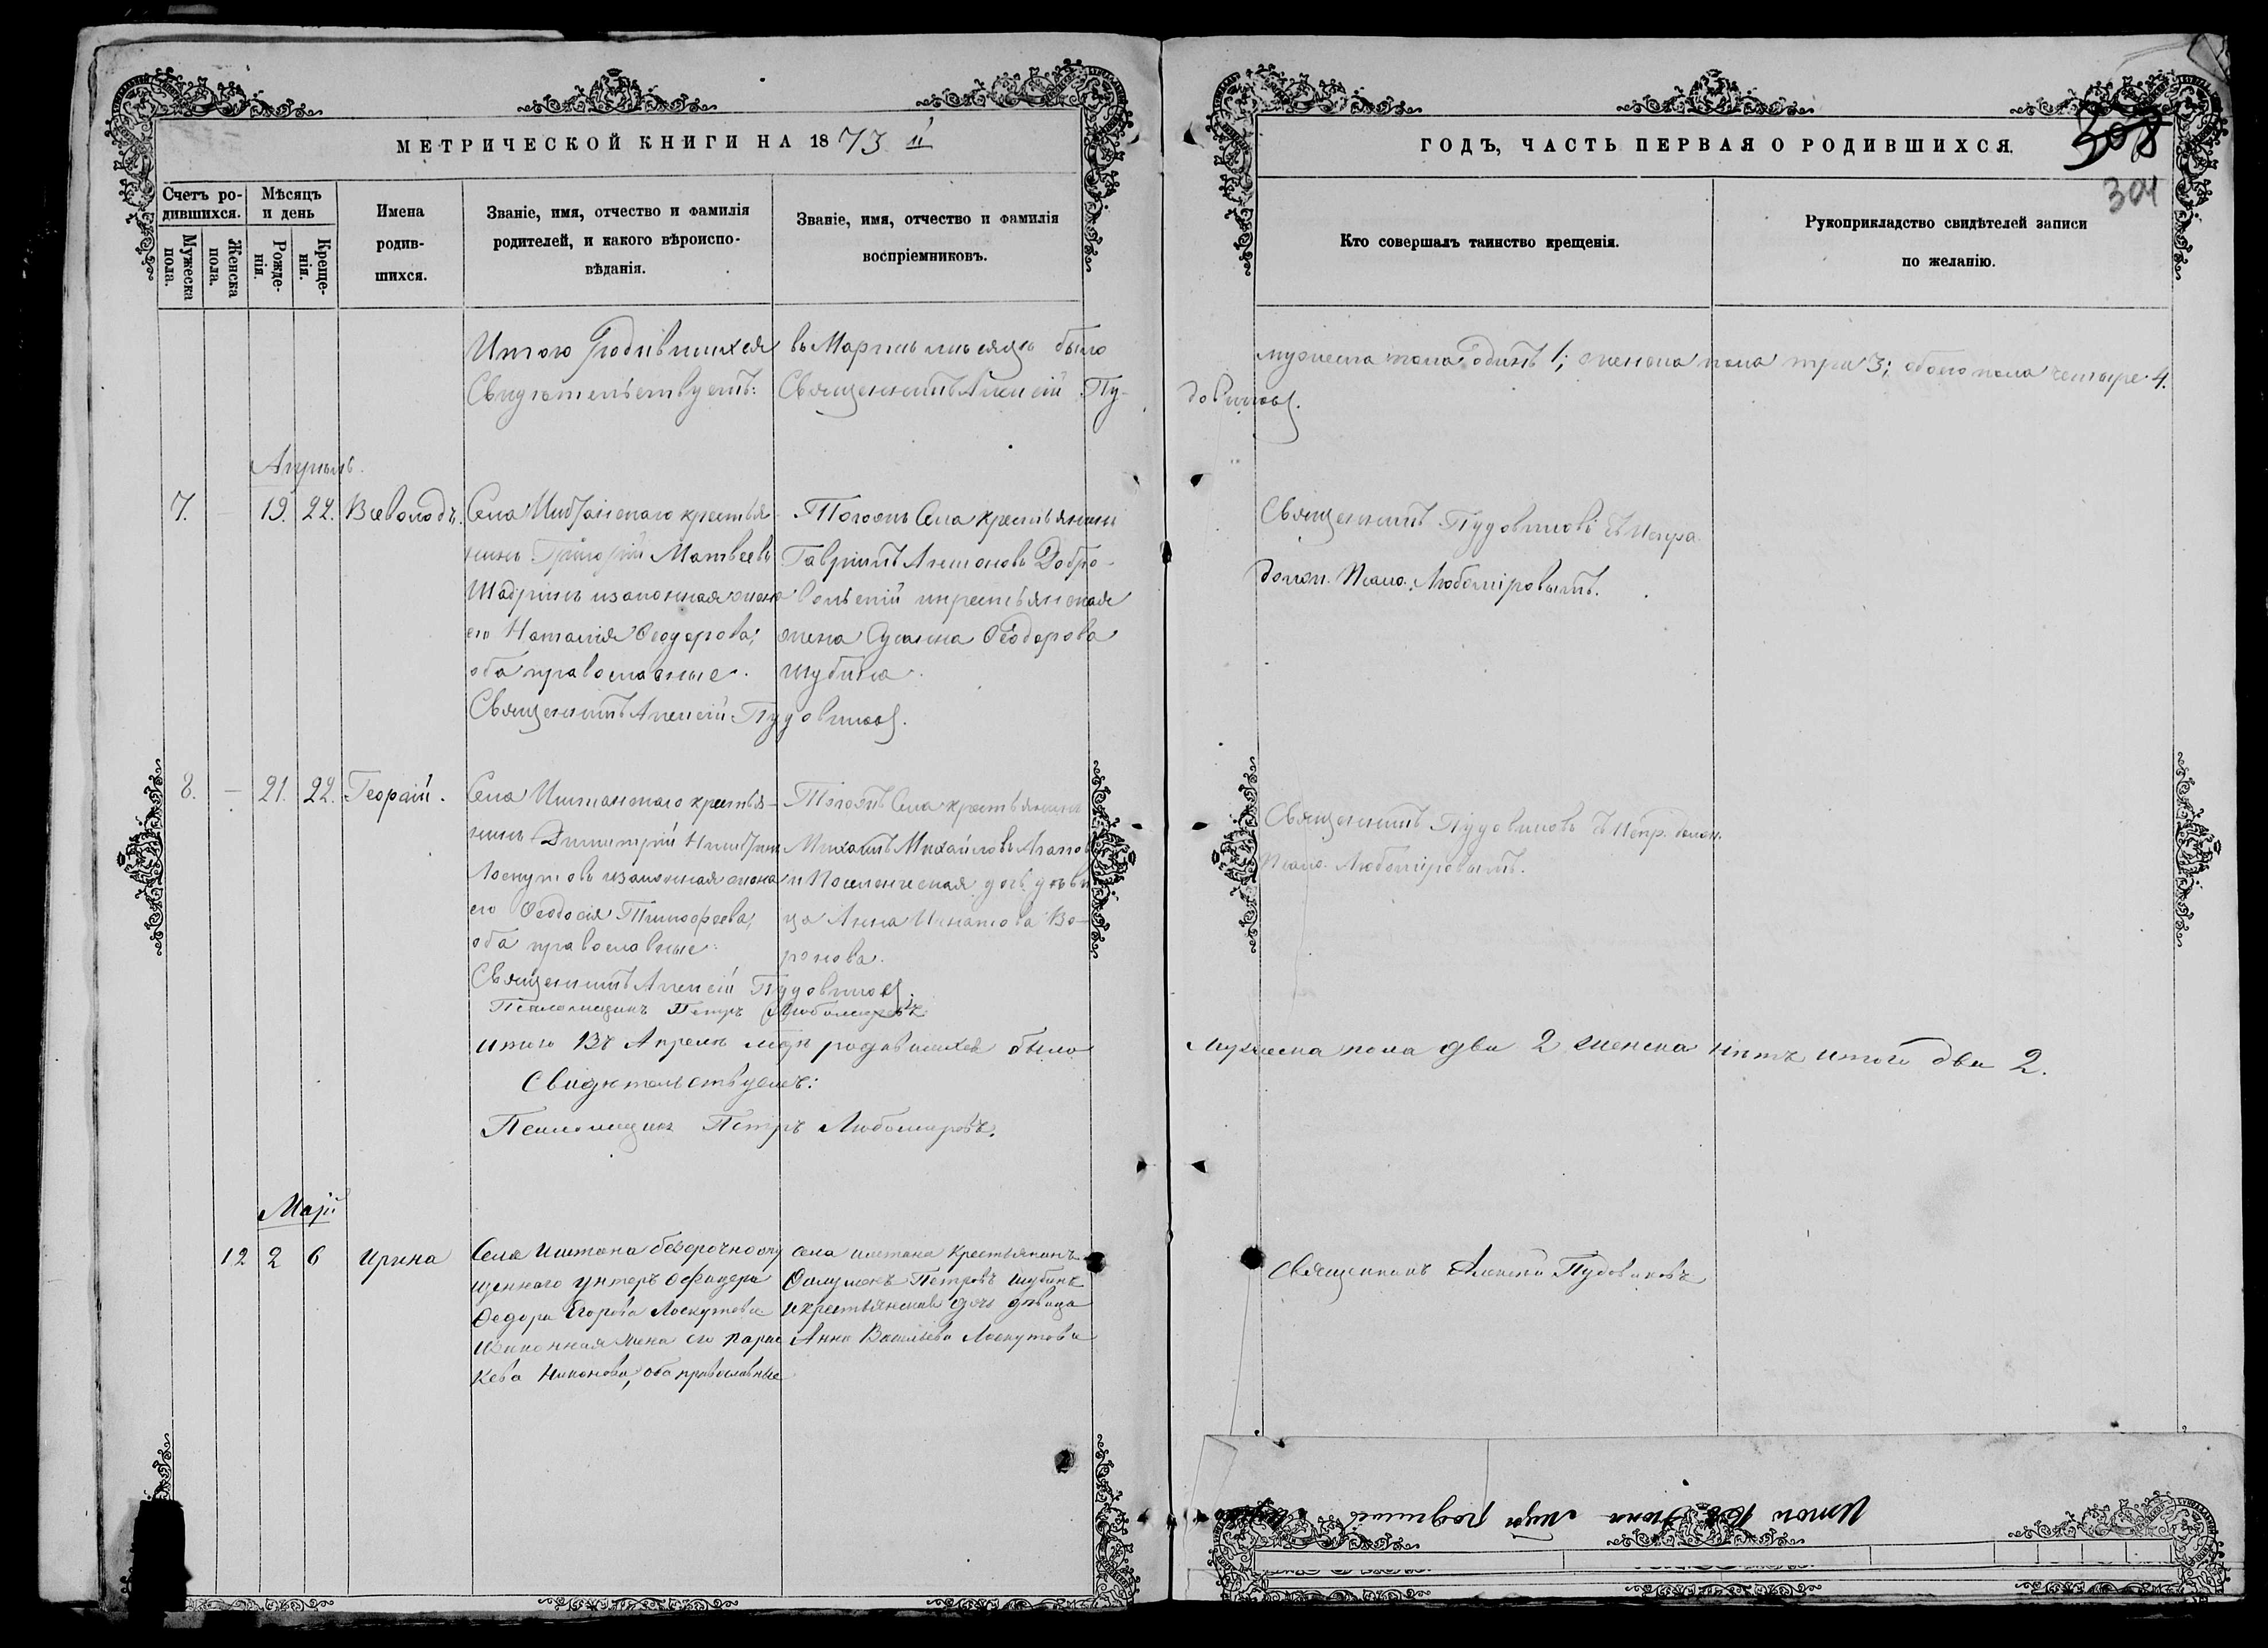 МЕТРИЧЕСКОЙ КНИГИ НА 1873 й
ГОДЪ, ЧАСТЬ ПЕРВАЯ О РОДИВШИХСЯ.
308
304
Счетъ ро-
дившихся.
Мужеска
пола.
Женска
пола.
Мѣсяцъ
и день
Рожде-
нія.
Креще-
нія.
Имена
родив-
шихся.
Званіе, имя, отчество и фамилія
родителей, и какого вѣроиспо-
вѣданія.
Званіе, имя, отчество и фамилія
воспріемниковъ.
Кто совершалъ таинство крещенія.
Рукоприкладство свидѣтелей записи
по желанію.
Итого родившихся въ Мартѣ мѣсяцѣ было мужеска пола одинъ 1; женска пола три 3; обоего пола четыре 4.
Свидѣтельствуетъ: Священникъ Алексій Пу-
довиковъ.
Апрѣль.
7. 19. 22. Всеволодъ.
Села Иштанскаго крестья-
нинъ Григорій Матвѣевъ
Шадринъ и законная жена
его Наталія Ѳеодорова;
оба православные.
Тогожъ Села крестьянинъ
Гавріилъ Антоновъ Добро-
вольскій и крестьянская
жена Сусанна Ѳеодорова
Шубина.
Священникъ Пудовиковъ съ Испра.
долж. Псало. Любоміровымъ.
Священникъ Алексій Пудовиковъ.
8. — 21. 22. Георгій.
Села Иштанскаго крестья-
нинъ Димитрій Никитинъ
Лоскутовъ и законная жена
его Ѳеодосія Тимоѳеева;
оба православные.
Тогожъ Села крестьянинъ
Михаилъ Михайловъ Агапов
и Поселенческая дочь дѣви
ца Анна Игнатова Во-
ронова.
Священникъ Пудовиковъ съ Испр. должн.
Псало. Любоміровымъ.
Священникъ Алексій Пудовиковъ.
Псаломщикъ Петръ Любомировъ
итого Въ Апрелѣ мцѣ родившихся было мужеска пола два 2 женска нѣтъ итого два 2.
Свидѣтельствуемъ:
Псаломщикъ Петръ Любомировъ.
Май
12 2 6 Ирина
Села Иштана безсрочноотпу
щеннаго унтеръ офицера
Ѳедора Егорова Лоскутова
и законная жена его Парас
кева Никонова, оба православные
Села иштана Крестьянинъ
Петровъ Шубинъ
и крестьянская дочь дѣвица
Анна Васильева Лоскутова
Священникъ Алексѣй Пудовиковъ